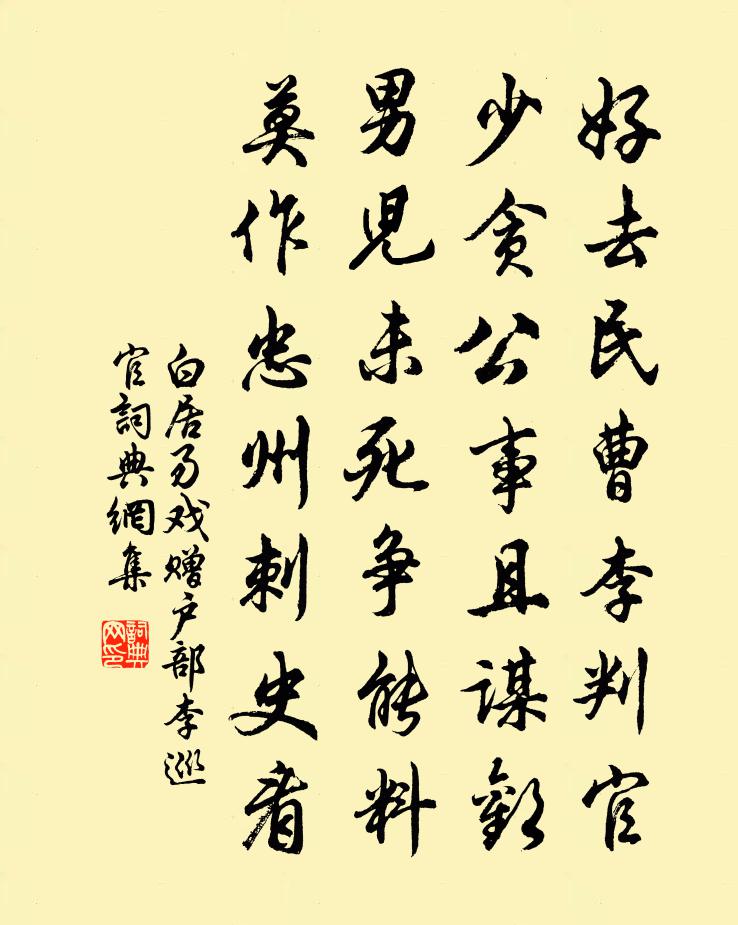 好去民曹李判官
少貪公事且謀歡
男兒未死争能料
莫作忠州刺史看
白居易戏赠户部李巡
官詞典網集
詞典
网印